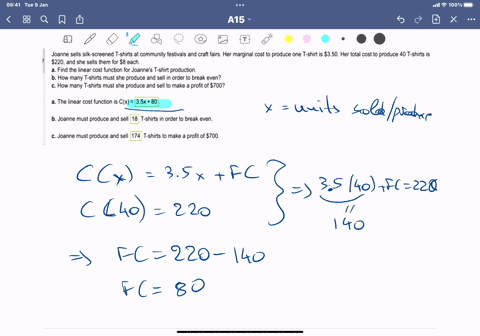 09:41 Tue 9 Jan
A15
Joanne sells silk-screened T-shirts at community festivals and craft fairs. Her marginal cost to produce one T-shirt is $3.50. Her total cost to produce 40 T-shirts is
$220, and she sells them for $8 each.
a. Find the linear cost function for Joanne's T-shirt production.
b. How many T-shirts must she produce and sell in order to break even?
c. How many T-shirts must she produce and sell to make a profit of $700?
a. The linear cost function is C(x) = 3.5x + 80.
x = units sold/produce
b. Joanne must produce and sell 18 T-shirts in order to break even.
c. Joanne must produce and sell 174 T-shirts to make a profit of $700.
C(x) = 3.5x + FC
C(40) = 220
=> 3.5(40) + FC = 220
140
=> FC = 220 - 140
FC = 80